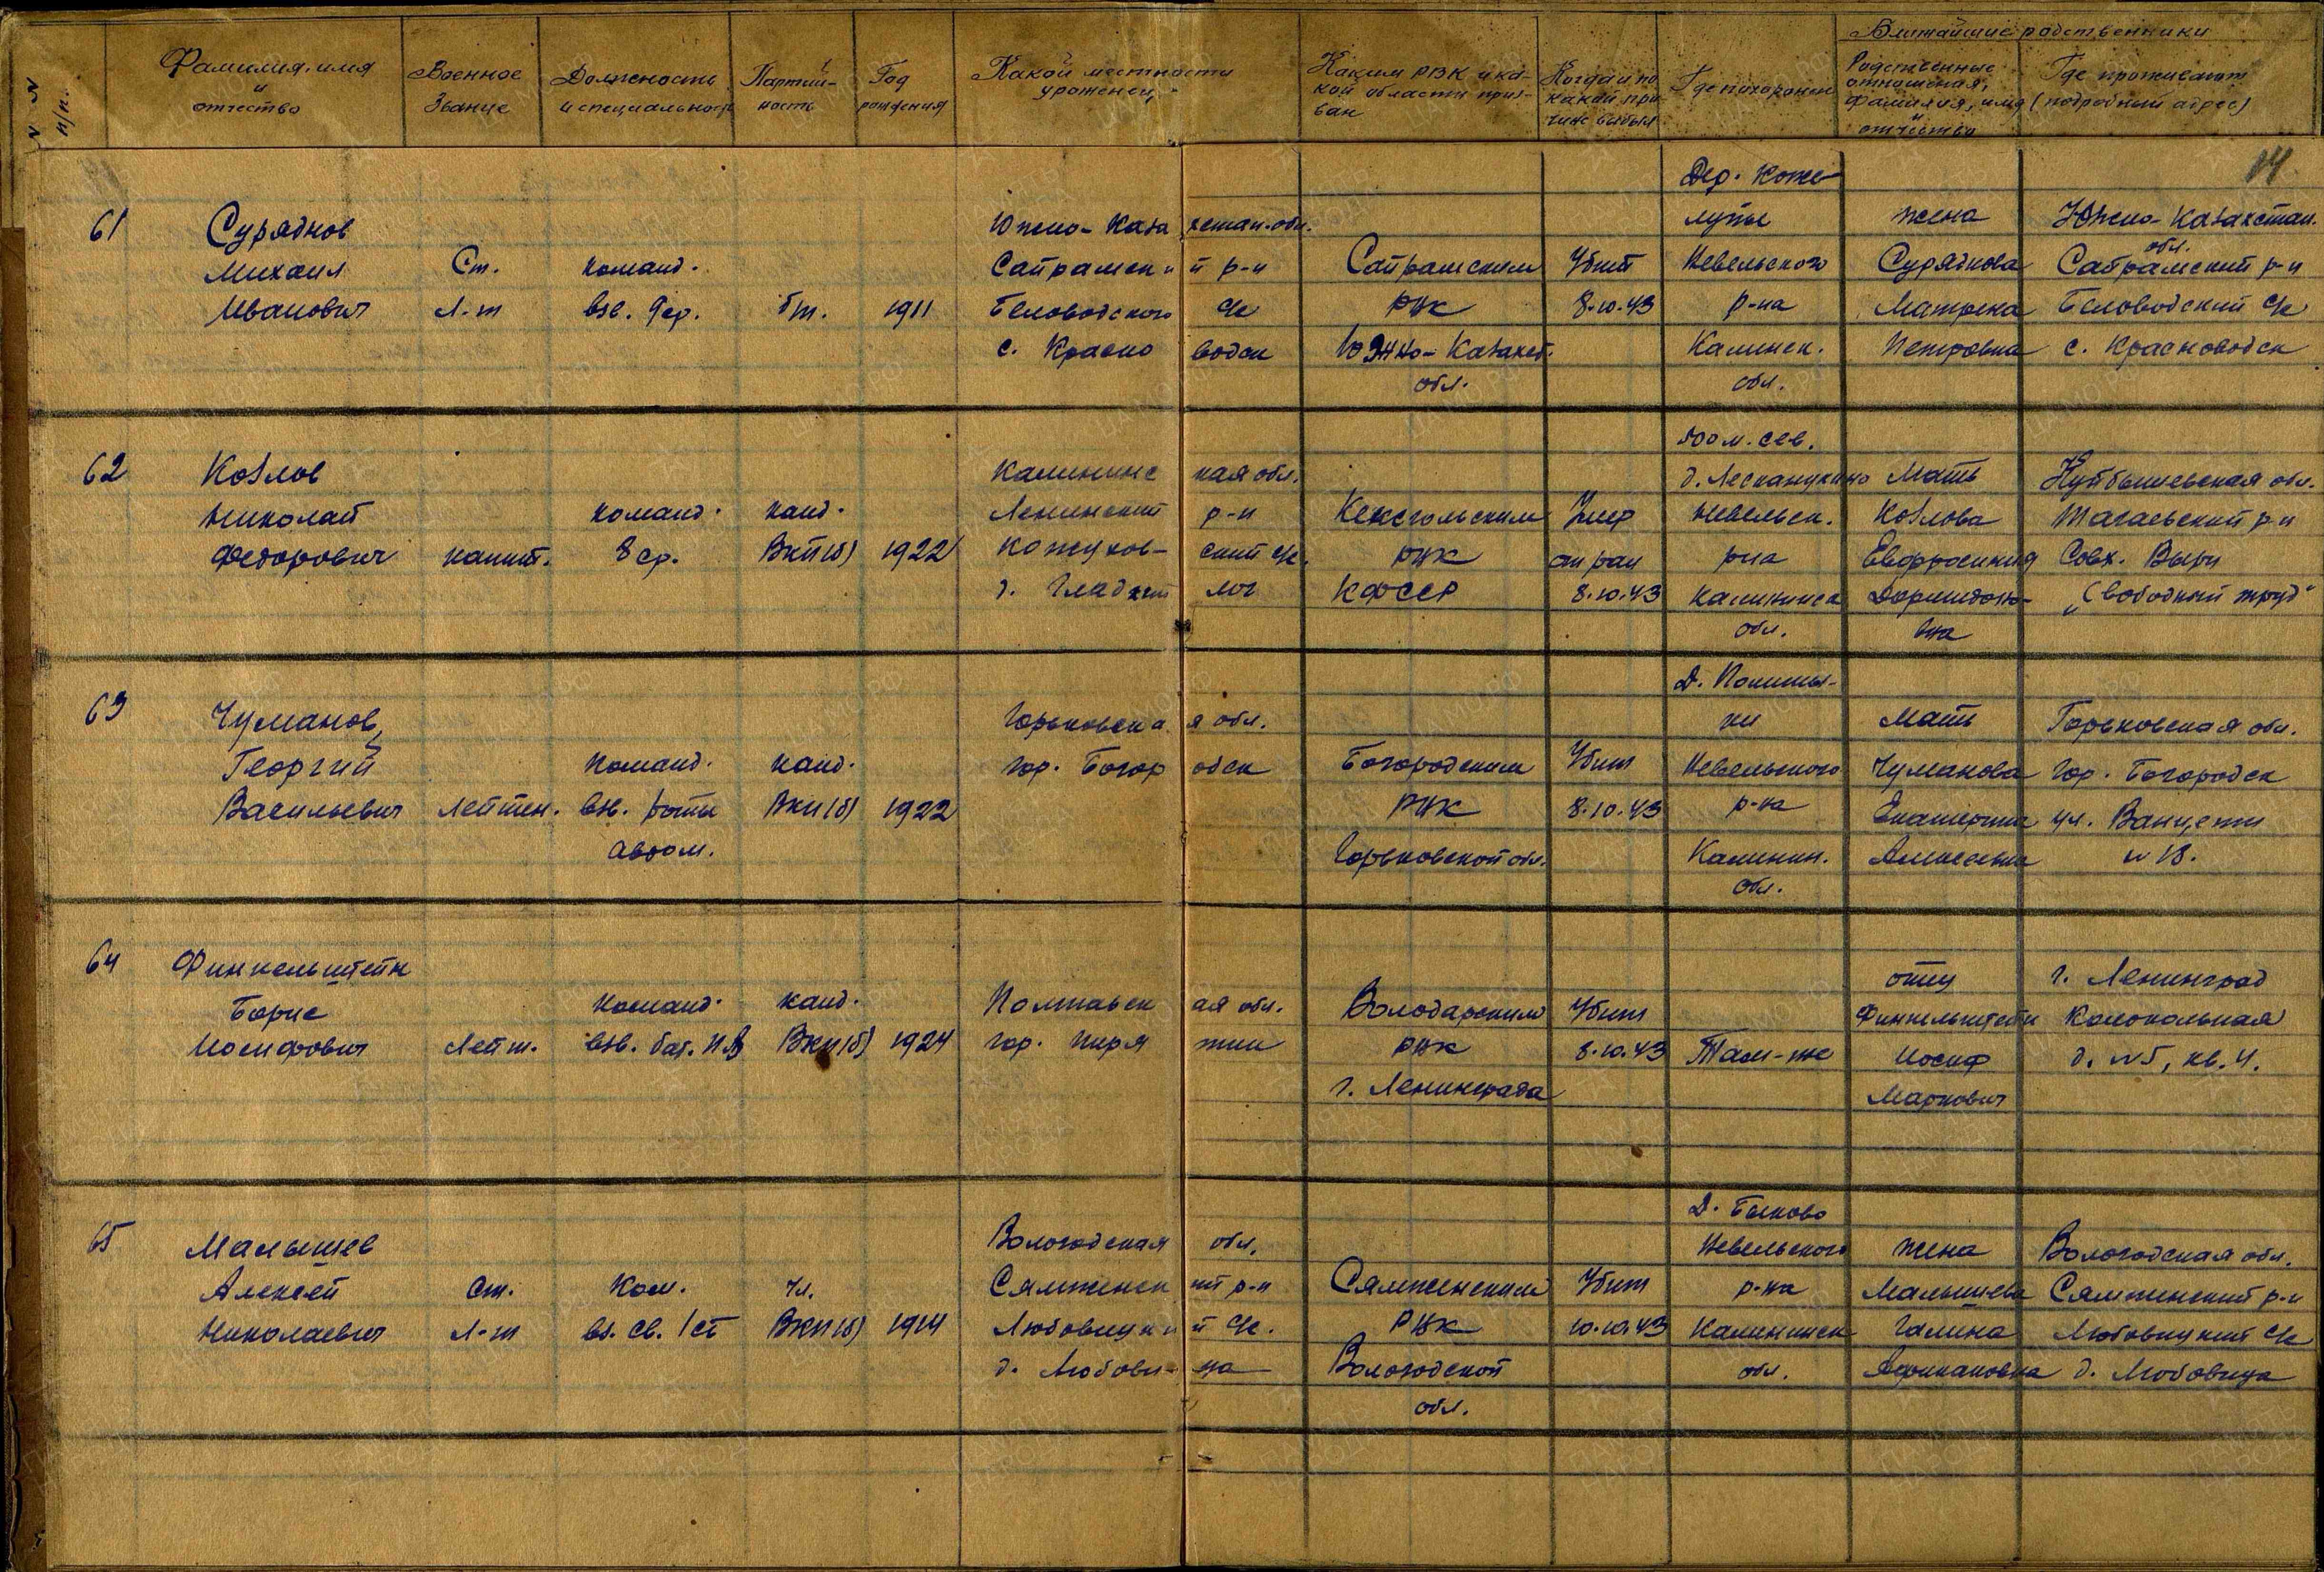 № № п/п.
Фамилия, имя и отчество
Военное Звание
Должность и специальность
Партий- ность
Год рождения
Какой местности уроженец
Каким РВК и ка- кой области приз- ван
Когда и по какой при- чине выбыл
Где похоронен
Ближайшие родственники
Родственные отношения, фамилия, имя и отчество
Где проживают (подробный адрес)
14
61
Суряднов
Михаил
Иванович
Ст.
Л-т
команд.
взв. 9ср.
б/п.
1911
Южно-Казахстан. обл.
Сайрамский р-н
Беловодского с/с
с. Красноводск
Сайрамским
РВК
Южно-Казахст.
обл.
Убит
8.10.43
Дер. Коже-
лупы
Невельского
р-на
Калинск.
обл.
жена
Суряднова
Матрена
Петровна
Южно-Казахстан.
обл.
Сайрамский р-н
Беловодский с/с
с. Красноводск
62
Козлов
Николай
Федорович
капит.
команд.
8 ср.
канд.
ВКП(б)
1922
Калининская обл.
Ленинский р-н
Кожуховский с/с.
РВК
КФССР
Умер
от ран
8.10.43
сев.
Невельск.
рна
Калининск
обл.
Мать
Козлова
Евфросиния
Дормидонто-
вна
Куйбышевская обл.
Тагаевский р-н
Совх. Выры
„Свободный труд"
63
Чуманов
Георгий
Васильевич
Лейтен.
команд.
взв. роты
автом.
канд.
ВКП(б)
1922
Горьковская обл.
гор. Богородск
Богородским
РВК
Горьковской обл.
Убит
8.10.43
Невельского
р-на
Калинин.
обл.
Мать
Чуманова
Екатерина
Алексеевна
Горьковская обл.
гор. Богородск
ул. Ванцети
№ 13.
64
Финкельштейн
Борис
Иосифович
Лейт.
команд.
взв. бат.
канд.
ВКП(б)
1924
Полтавская обл.
гор. Пирятин
Володарским
РВК
г. Ленинграда
Убит
8.10.43
Там-же
отец
Финкельштейн
Иосиф
Маркович
г. Ленинград
Колокольная
д. №5, кв. 4.
65
Малышев
Алексей
Николаевич
Ст.
Л-т
Ком.
вз. св. 1сб
Чл.
ВКП(б)
1914
Вологодская обл.
Сямженский р-н
Любовицкий с/с.
д. Любовица
Сямженским
РВК
Вологодской
обл.
Убит
10.10.43
Д. Быково
Невельского
р-на
Калининск
обл.
жена
Малышева
Галина
Африкановна
Вологодская обл.
Сямженский р-н
Любовицкий с/с
д. Любовица